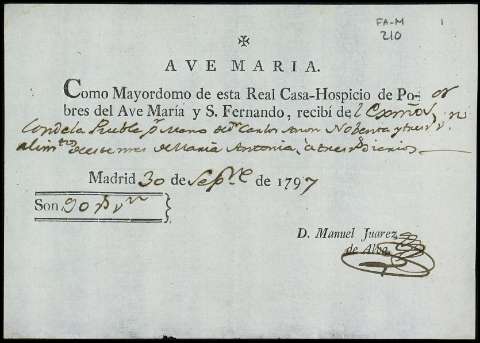 FA-M 1
210
✠
AVE MARIA.
Como Mayordomo de esta Real Casa-Hospicio de Po-
bres del Ave María y S. Fernando, recibí del Exmo Sor
Conde la Puebla pr mano de Dn Carlos Noventa y tres
alimtos de este mes de María Antonia, a tres diarios
Madrid 30 de Sepre de 1797
Son 90 rs vn
D. Manuel Juarez
de Alva